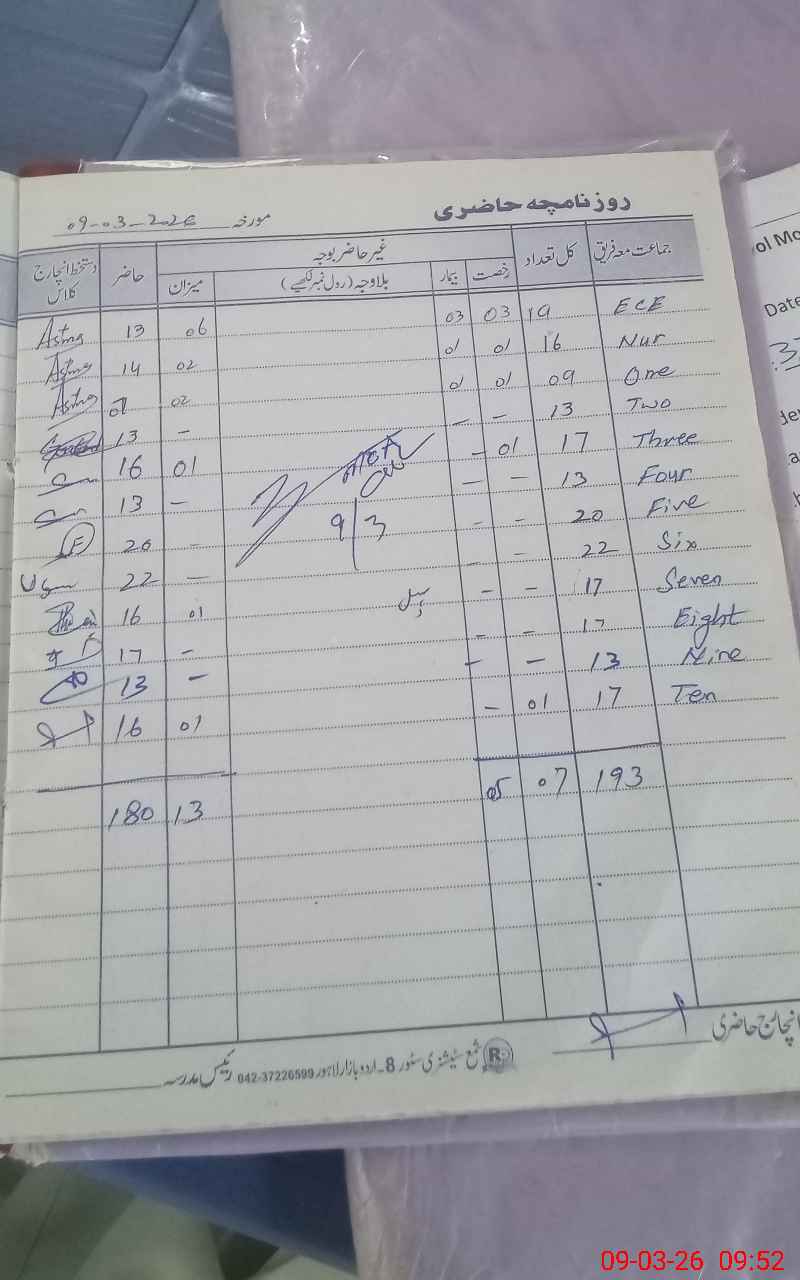 روزنامچہ حاضری
مورخہ 09-03-2026
جماعت معہ فریق کل تعداد غیر حاضر بوجہ حاضر دستخط انچارج کلاس
رخصت بیمار بلاوجہ (رول نمبر لکھیے) میزان
ECE 19 03 03 06 13 Asma
Nur 16 01 01 02 14 Asma
One 09 01 01 02 07 Asma
Two 13 - - - 13
Three 17 01 - 01 16
Four 13 - - - 13
Five 20 - - - 20
Six 22 - - - 22
Seven 17 - - 01 16
Eight 17 - - - 17
Nine 13 - - - 13
Ten 17 01 - 01 16
9/3
193 07 05 13 180
انچارج حاضری
رئیس مدرسہ
شمع سٹیشنری سٹور 8۔اردو بازار لاہور 042-37226599
R
ol Mo
Date
09-03-26 09:52